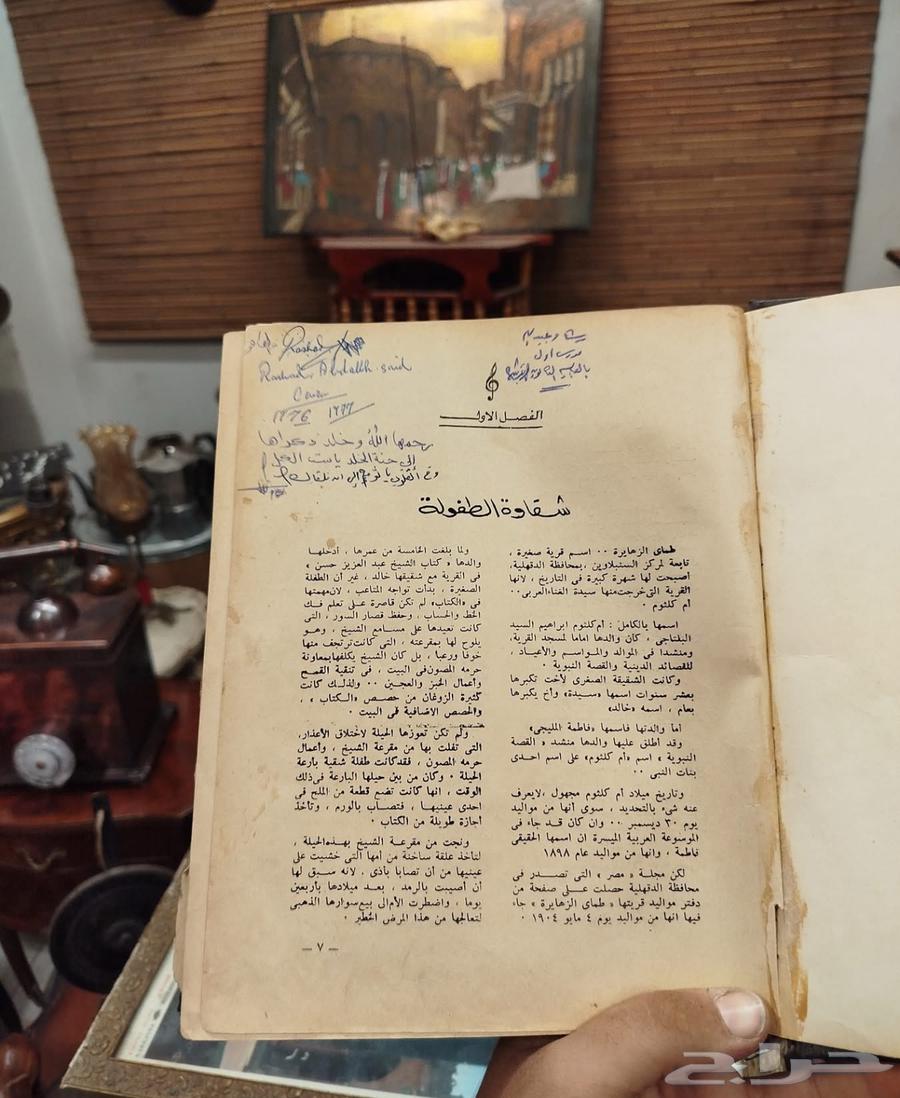 Rashad
Rashad Abdallah said
Cairo
١٩٧٦ ١٩٧٧
رحمها الله وخلد ذكراها
إلى جنة الخلد يا ست الكل
مدرس اول
الفصل الاول
شقاوة الطفولة
طماى الزهايرة ٠٠ اسم قرية صغيرة ،
تابعة لمركز السنبلاوين ،بمحافظة الدقهلية،
أصبحت لها شهرة كبيرة فى التاريخ ، لانها
القرية التى خرجت منها سيدة الغناء العربى٠٠
أم كلثوم ٠
اسمها بالكامل : أم كلثوم ابراهيم السيد
البلتاجى ، كان والدها اماما لمسجد القرية،
ومنشدا فى الموالد والمواسم والأعياد ،
للقصائد الدينية والقصة النبوية ٠
وكانت الشقيقة الصغرى لأخت تكبرها
بعشر سنوات اسمها «سيدة» وأخ يكبرها
بعام ، اسمه «خالد»
أما والدتها فاسمها «فاطمة المليجى»
وقد أطلق عليها والدها منشد « القصة
النبوية » اسم «أم كلثوم» على اسم احدى
بنات النبى ٠٠
وتاريخ ميلاد أم كلثوم مجهول ،لايعرف
عنه شىء بالتحديد ، سوى أنها من مواليد
يوم ٣٠ ديسمبر ٠٠ وان كان قد جاء فى
الموسوعة العربية الميسرة ان اسمها الحقيقى
فاطمة ، وانها من مواليد عام ١٨٩٨
لكن مجلة « مصر » التى تصدر فى
محافظة الدقهلية حصلت على صفحة من
دفتر مواليد قريتها « طماى الزهايرة » جاء
فيها انها من مواليد يوم ٤ مايو ١٩٠٤ ٠
ولما بلغت الخامسة من عمرها ، أدخلها
والدها « كتاب الشيخ عبد العزيز حسن »
فى القرية مع شقيقها خالد، غير أن الطفلة
الصغيرة ، بدأت تواجه المتاعب ، لان مهمتها
فى «الكتاب» لم تكن قاصرة على تعلم فك
الخط والحساب ، وحفظ قصار السور ، التى
كانت تعيدها على مسامع الشيخ ، وهو
يلوح لها بمقرعته ، التى كانت ترتجف منها
خوفا ورعبا ، بل كان الشيخ يكلفها بمعاونة
حرمه المصون فى البيت ، فى تنقية القمح
وأعمال الخبز والعجين ٠٠ ولذلك كانت
كثيرة الزوغان من حصص «الكتاب» ،
والحصص الاضافية فى البيت ٠
ولم تكن تعوزها الحيلة لاختلاق الأعذار،
التى تفلت بها من مقرعة الشيخ ، وأعمال
حرمه المصون ، فقد كانت طفلة شقية بارعة
الحيلة ٠ وكان من بين حيلها البارعة فى ذلك
الوقت ، انها كانت تضع قطعة من الملح فى
احدى عينيها ، فتصاب بالورم ، وتأخذ
أجازة طويلة من الكتاب ٠
ونجت من مقرعة الشيخ بهذه الحيلة ،
لتأخذ علقة ساخنة من أمها التى خشيت على
عينيها من أن تصابا بأذى ، لانه سبق لها
أن أصيبت بالرمد ، بعد ميلادها بأربعين
يوما ، واضطرت الأم الى بيع سوارها الذهبى
لتعالجها من هذا المرض الخطير ٠
— ٧ —
حراج